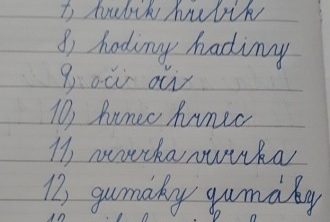 7, hřebík hřebík
8, hodiny hodiny
9, oči oči
10, hrnec hrnec
11, veverka veverka
12, gumáky gumáky